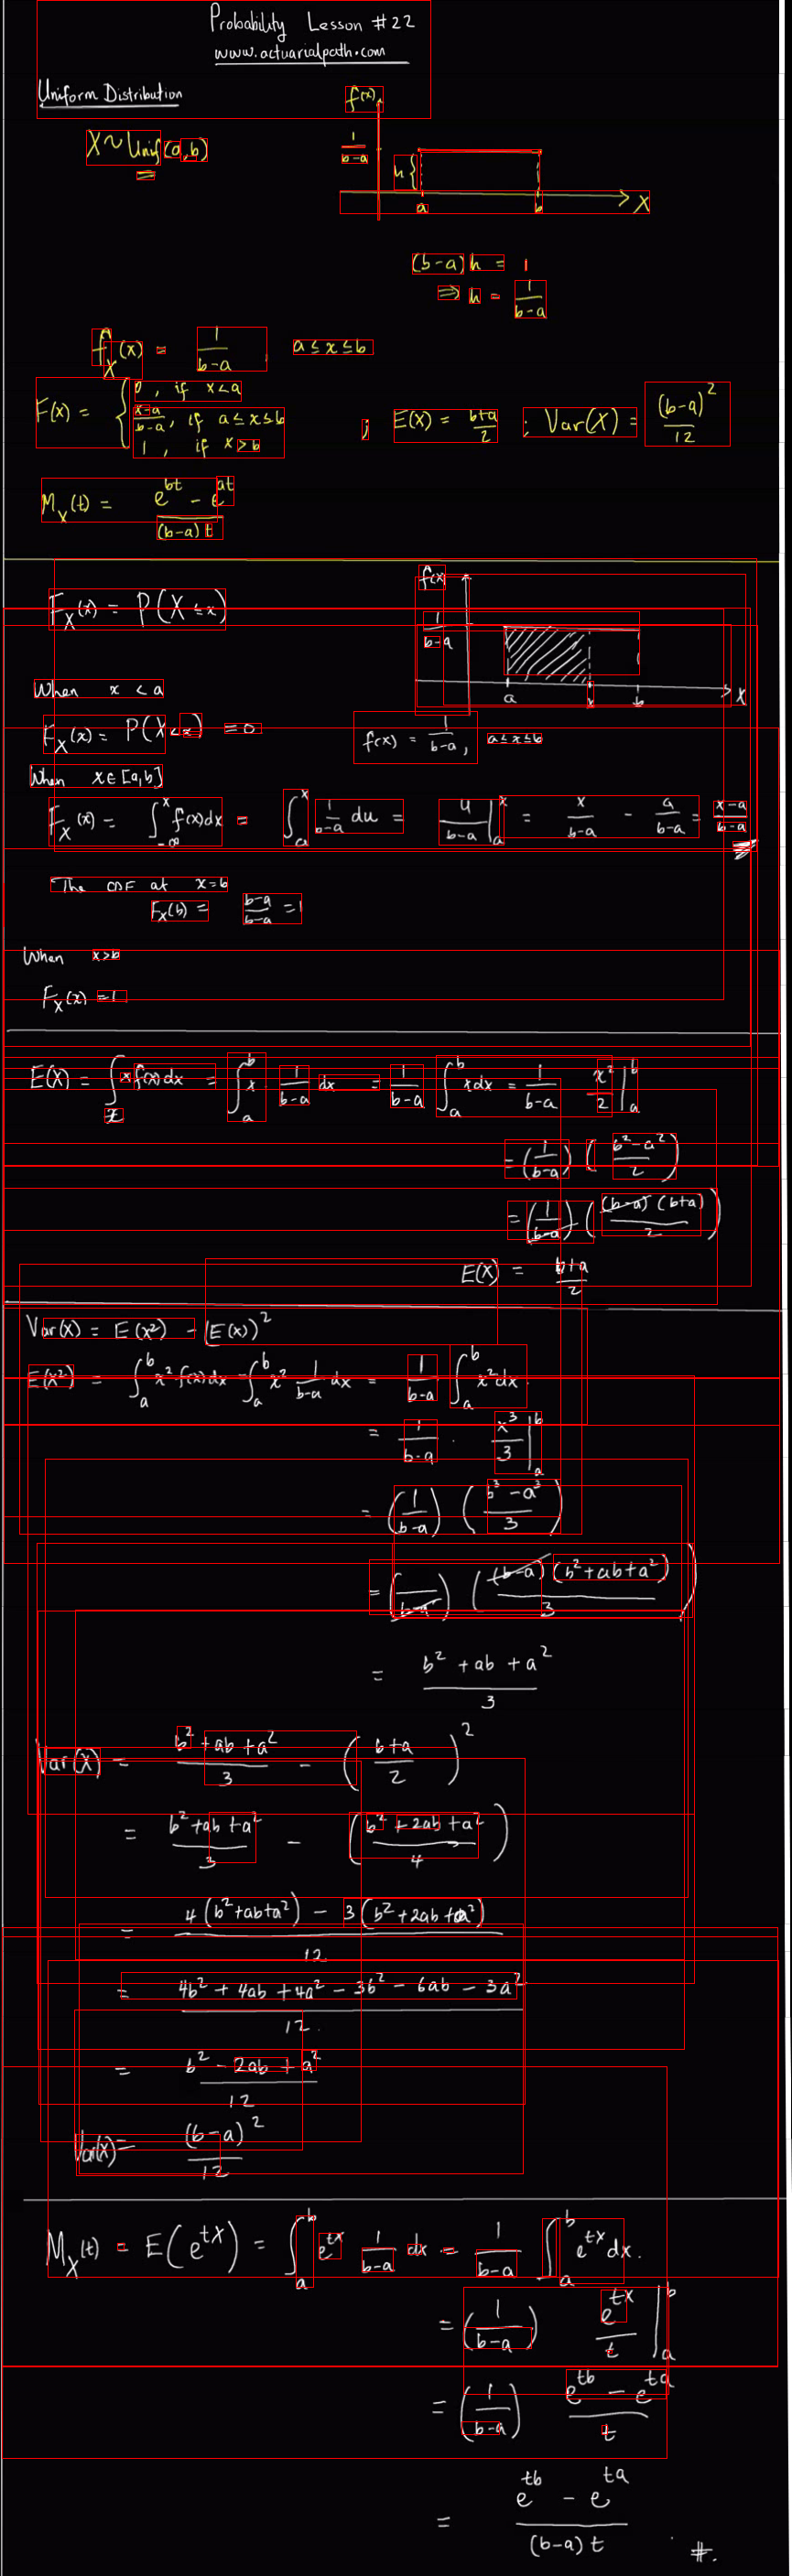 Probability Lesson #22
www.actuarialpath.com
Uniform Distribution
f(x)
X ~ Unif (a,b)
1/(b-a)
h{
a b X
(b-a) h = 1
⇒ h = 1/(b-a)
f_X(x) = 1/(b-a) , a ≤ x ≤ b
F(x) = { 0 , if x<a
(x-a)/(b-a), if a ≤ x ≤ b ; E(X) = (b+a)/2 ; Var(X) = (b-a)²/12
1 , if x>b
M_X(t) = (e^{bt} - e^{at})/((b-a)t)
f(x)
F_X(x) = P(X ≤ x)
1/(b-a)
a x b X
When x < a
F_X(x) = P(X<x) = 0
f(x) = 1/(b-a), a ≤ x ≤ b
When x ∈ [a,b]
F_X(x) = ∫_{-∞}^{x} f(x)dx = ∫_a^x 1/(b-a) du = u/(b-a) |_a^x = x/(b-a) - a/(b-a) = (x-a)/(b-a)
The CDF at x=b
F_X(b) = (b-a)/(b-a) = 1
When x>b
F_X(x) = 1
E(X) = ∫_x x f(x) dx = ∫_a^b x · 1/(b-a) dx = 1/(b-a) ∫_a^b x dx = 1/(b-a) x²/2 |_a^b
= (1/(b-a)) ((b²-a²)/2)
= (1/(b-a)) ((b-a)(b+a)/2)
E(X) = (b+a)/2
Var(X) = E(X²) - [E(X)]²
E(X²) = ∫_a^b x² f(x) dx = ∫_a^b x² 1/(b-a) dx = 1/(b-a) ∫_a^b x² dx.
= 1/(b-a) · x³/3 |_a^b
= (1/(b-a)) ((b³-a³)/3)
= (1/(b-a)) ((b-a)(b²+ab+a²)/3)
= (b²+ab+a²)/3
Var(X) = (b²+ab+a²)/3 - ((b+a)/2)²
= (b²+ab+a²)/3 - ((b²+2ab+a²)/4)
= (4(b²+ab+a²) - 3(b²+2ab+a²))/12
= (4b²+4ab+4a²-3b²-6ab-3a²)/12.
= (b²-2ab+a²)/12
Var(X) = (b-a)²/12
M_X(t) = E(e^{tX}) = ∫_a^b e^{tx} 1/(b-a) dx = 1/(b-a) ∫_a^b e^{tx} dx.
= (1/(b-a)) e^{tx}/t |_a^b
= (1/(b-a)) (e^{tb} - e^{ta})/t
= (e^{tb} - e^{ta})/((b-a)t) #.